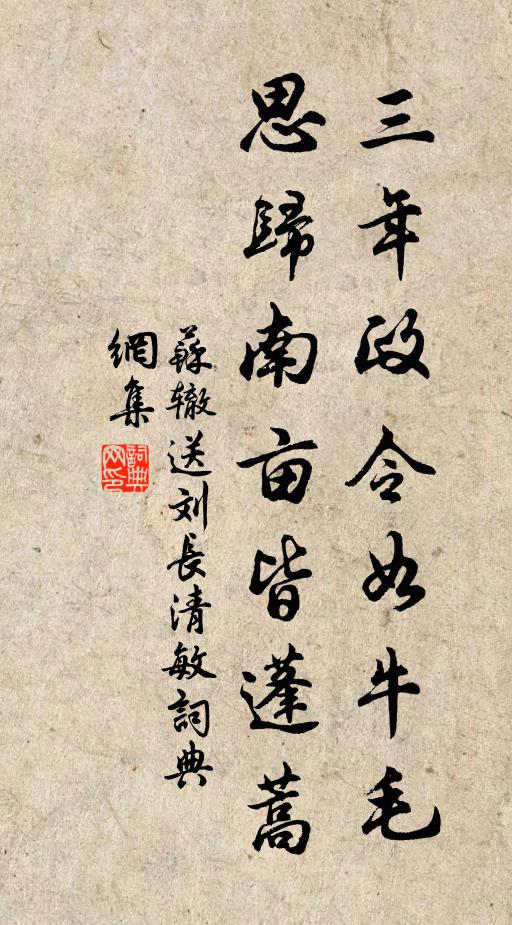 三年政令如牛毛
思歸南亩皆蓬蒿
蘇辙送刘長清敏詞典
網集
詞典
网印